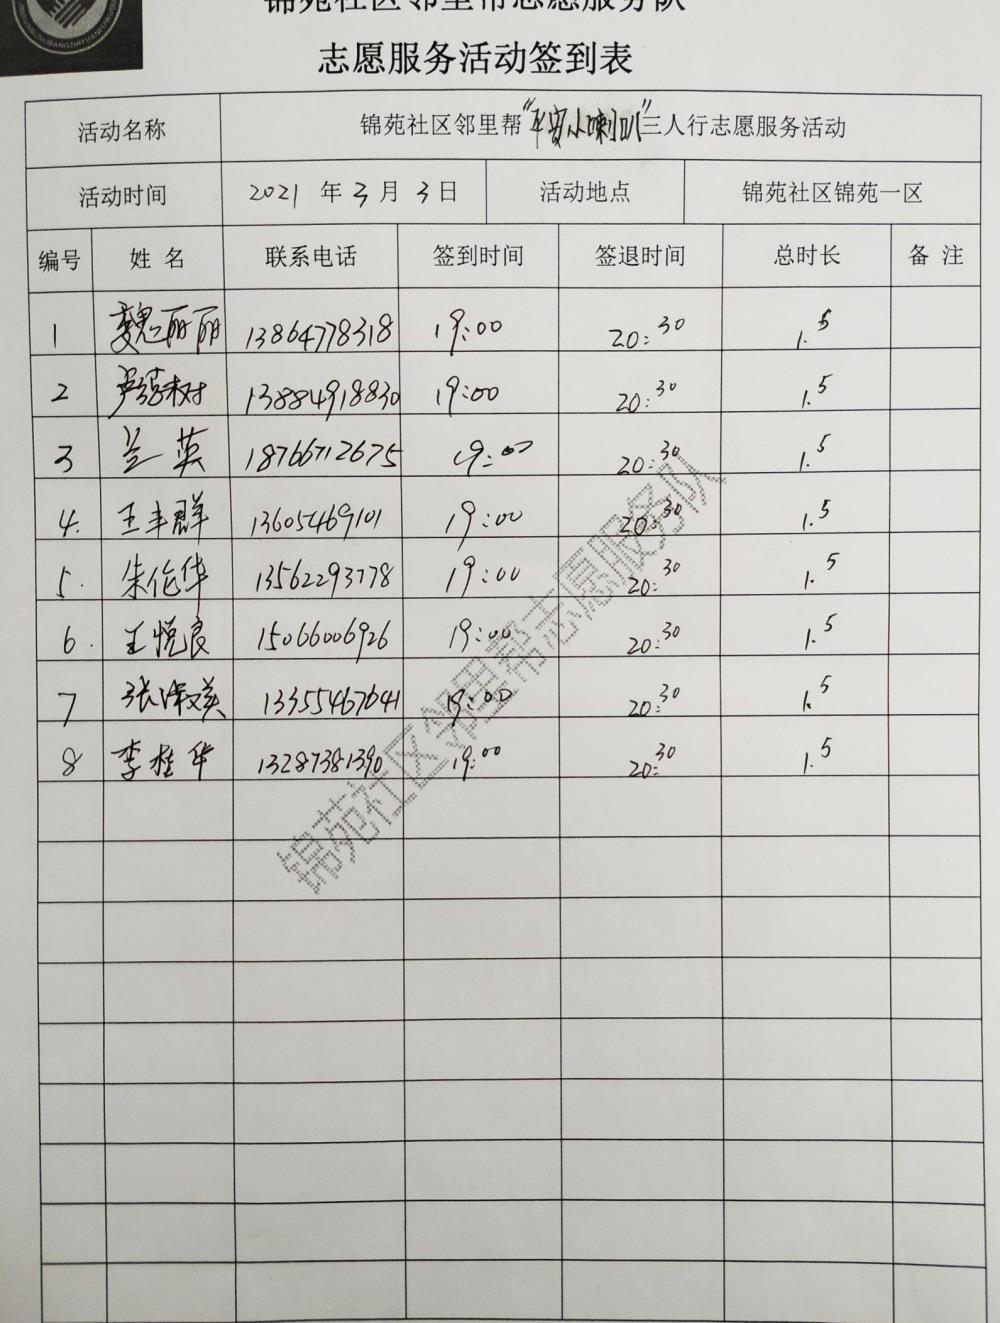 锦苑社区邻里帮志愿服务队
志愿服务活动签到表
活动名称 锦苑社区邻里帮“平安小喇叭”三人行志愿服务活动
活动时间 2021 年 3 月 3 日 活动地点 锦苑社区锦苑一区
编号 姓 名 联系电话 签到时间 签退时间 总时长 备 注
1 魏丽丽 13864778318 19:00 20:30 1.5
2 13884918830 19:00 20:30 1.5
3 兰英 18766712675 19:00 20:30 1.5
4. 王丰群 13605469101 19:00 20:30 1.5
5. 朱伦华 13562293778 19:00 20:30 1.5
6. 王悦良 15066006926 19:00 20:30 1.5
7 张淑英 13355467641 19:00 20:30 1.5
8 李桂华 13287381390 19:00 20:30 1.5
锦苑社区邻里帮志愿服务队